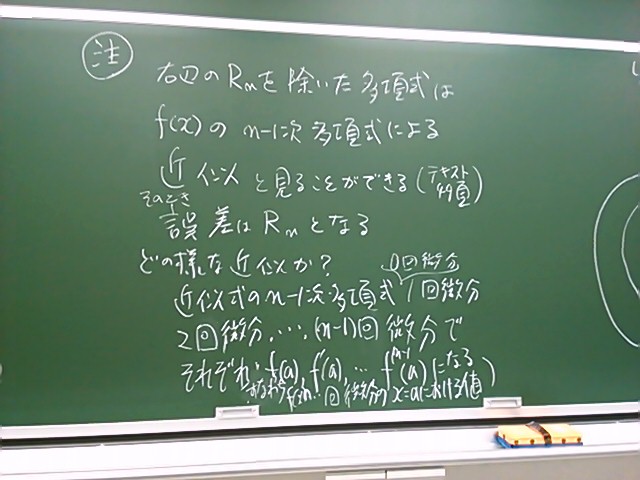 注
右辺のRnを除いた多項式は
f(x)のn-1次多項式による
近似と見ることができる(テキスト49頁)
そのとき
誤差はRnとなる
どの様な近似か?
0回微分
近似式のn-1次多項式 1回微分
2回微分,…,(n-1)回微分で
それぞれ,f(a),f'(a),…fⁿ⁻¹(a)になる
すなわち f(x)の…回微分の x=aにおける値)